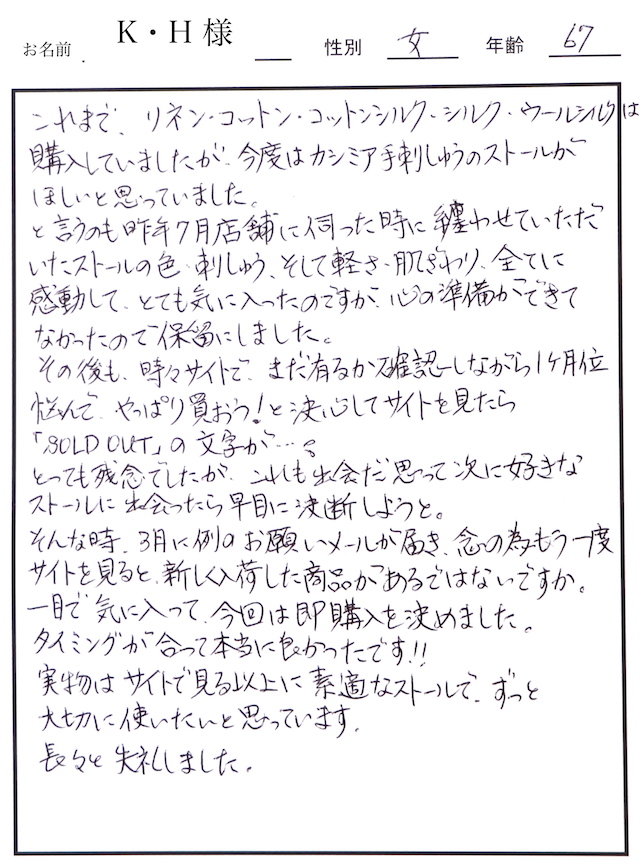 お名前 K・H 様 性別 女 年齢 67
これまで、リネン・コットン・コットンシルク・シルク・ウールシルクは
購入していましたが、今度はカシミア手刺しゅうのストールが
ほしいと思っていました。
と言うのも昨年7月店舗に伺った時に纏わせていただ
いたストールの色・刺しゅう、そして軽さ・肌ざわり、全てに
感動して、とても気に入ったのですが、心の準備ができて
なかったので保留にしました。
その後も、時々サイトで、まだ有るか確認しながら1ヶ月位
悩んで、やっぱり買おう!と決心してサイトを見たら
「SOLD OUT」の文字が…。
とっても残念でしたが、これも出会だ思って次に好きな
ストールに出会ったら早目に決断しようと。
そんな時、3月に例のお願いメールが届き、念の為もう一度
サイトを見ると、新しく入荷した商品があるではないですか。
一目で気に入って、今回は即購入を決めました。
タイミングが合って本当に良かったです!!
実物はサイトで見る以上に素適なストールで、ずっと
大切に使いたいと思っています。
長々と失礼しました。